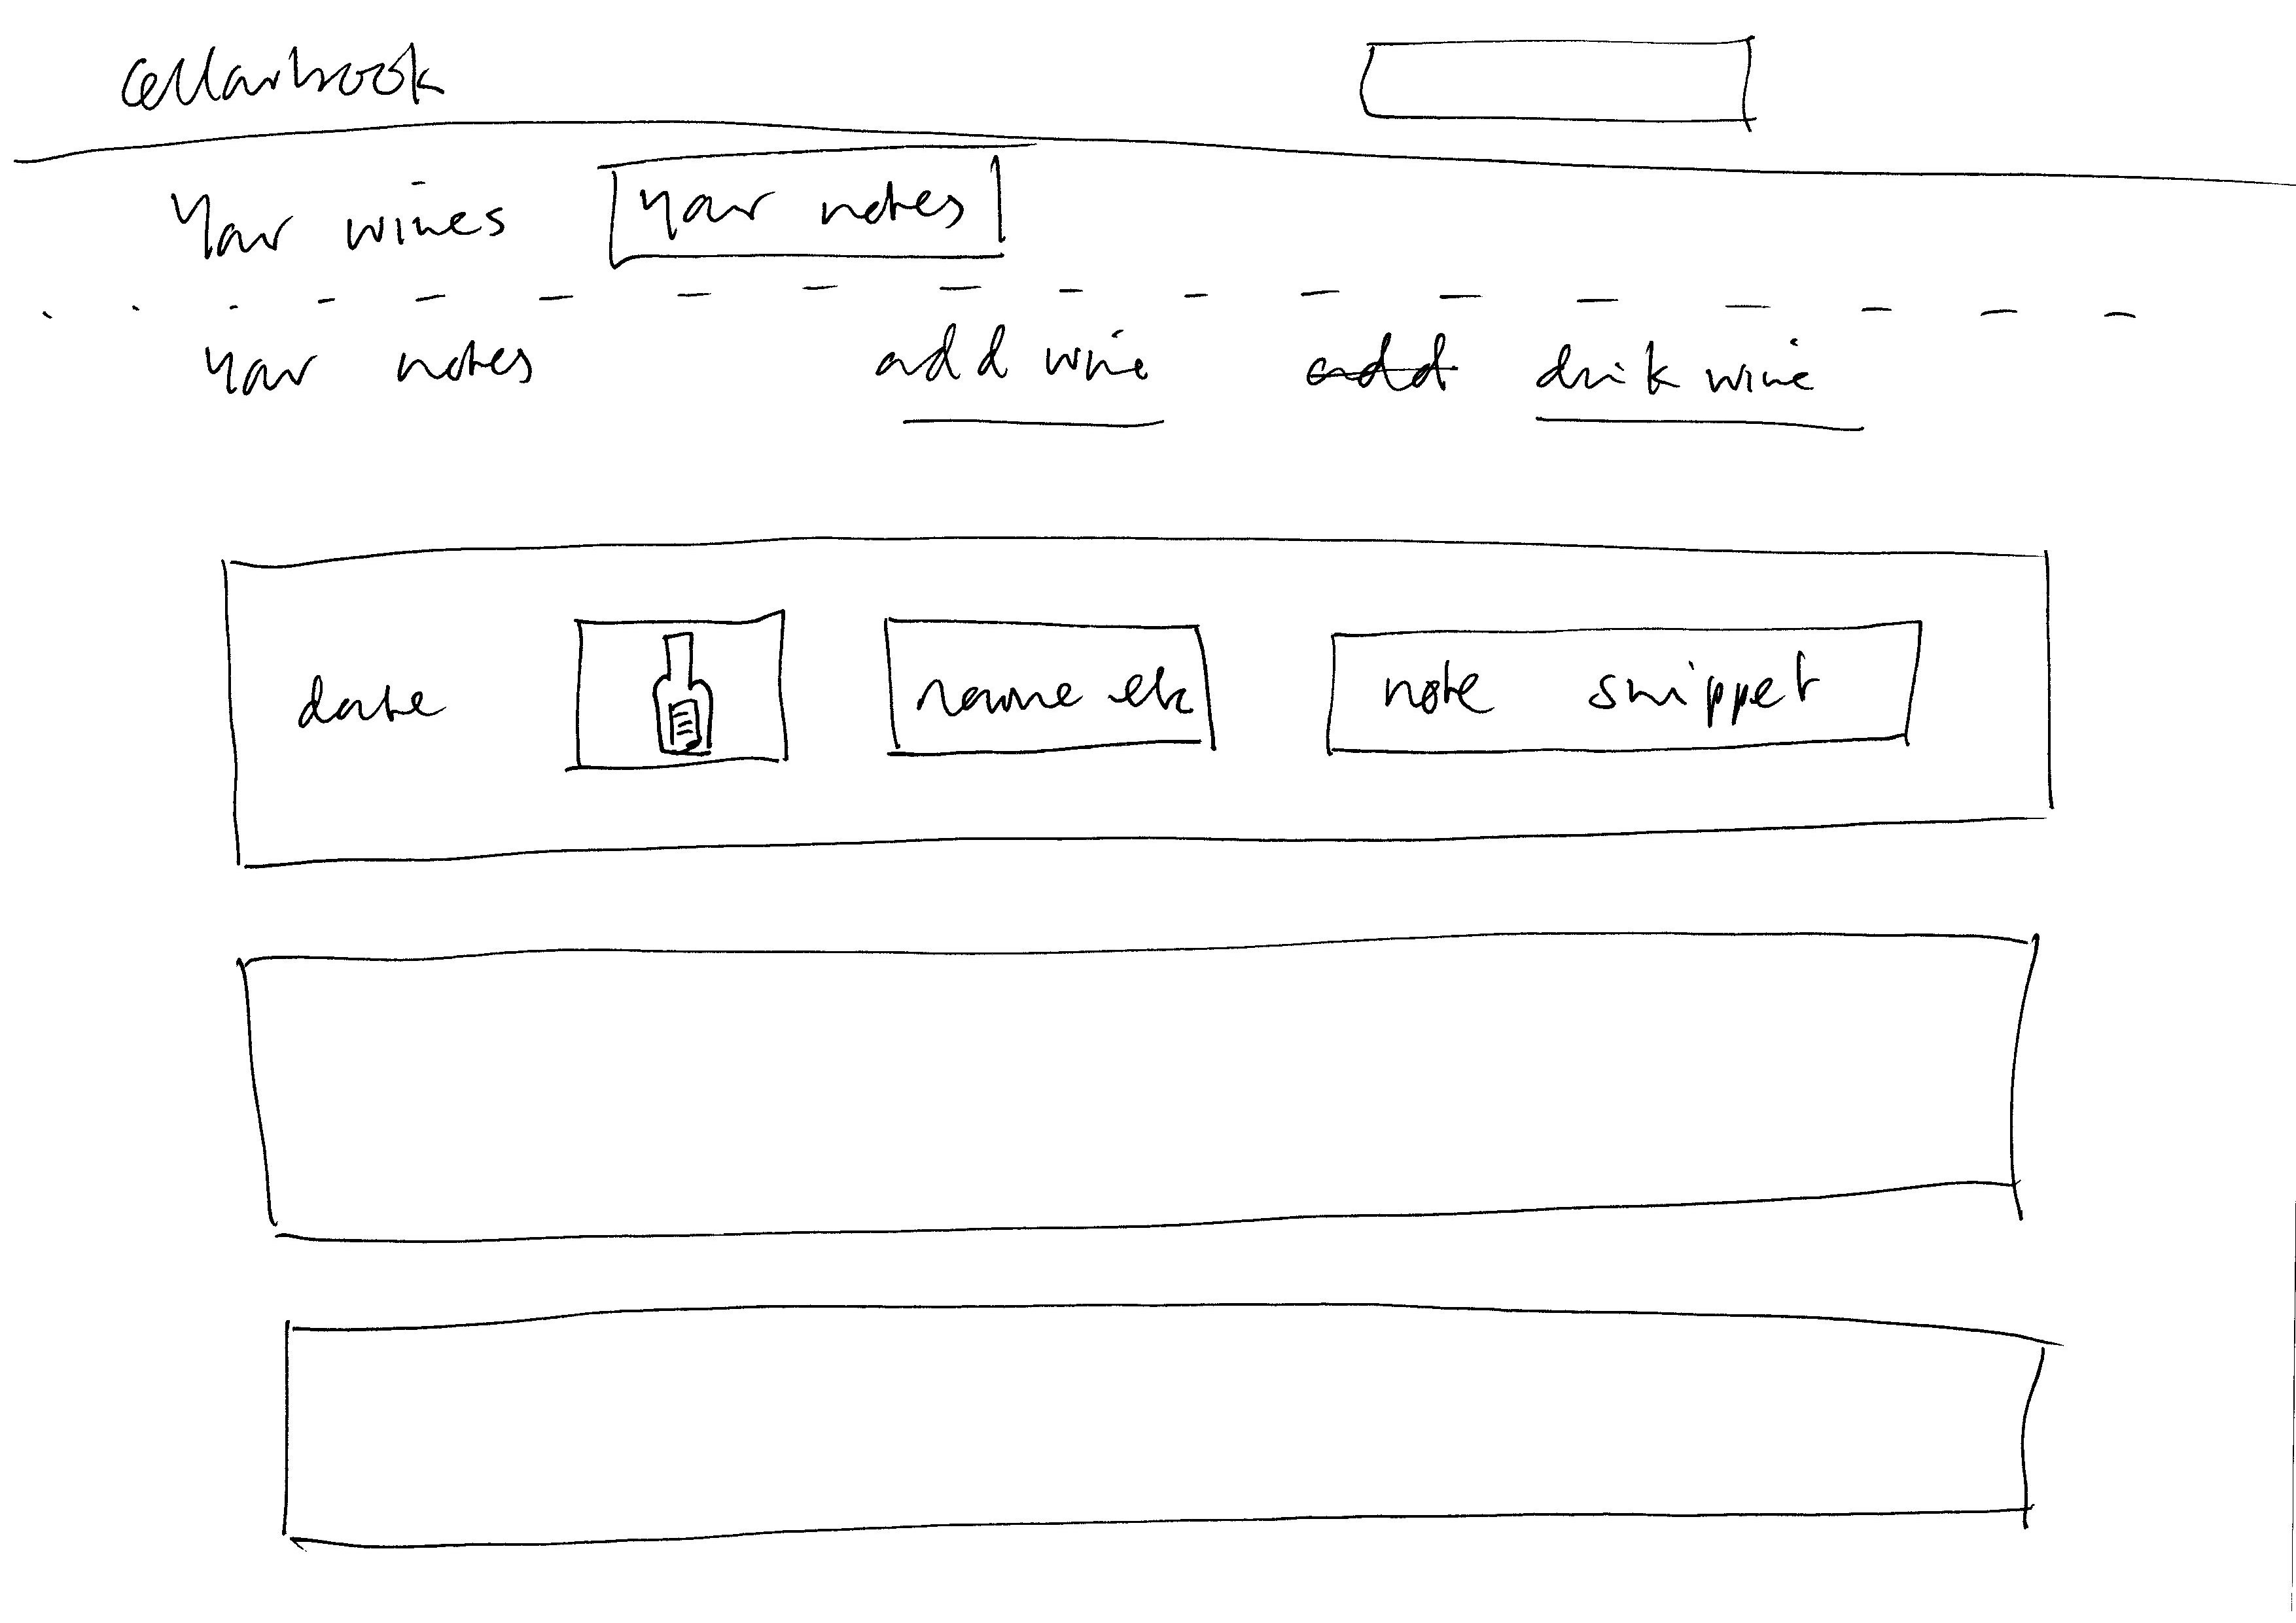 cellarbook
Your wines your notes
your notes add wine add drink wine
date name etc note snippet